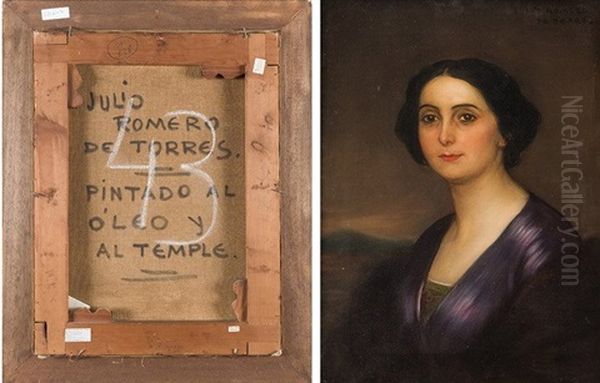 JULIO
ROMERO
DE TORRES.
PINTADO AL
ÓLEO Y
AL TEMPLE.
43
NiceArtGallery.com